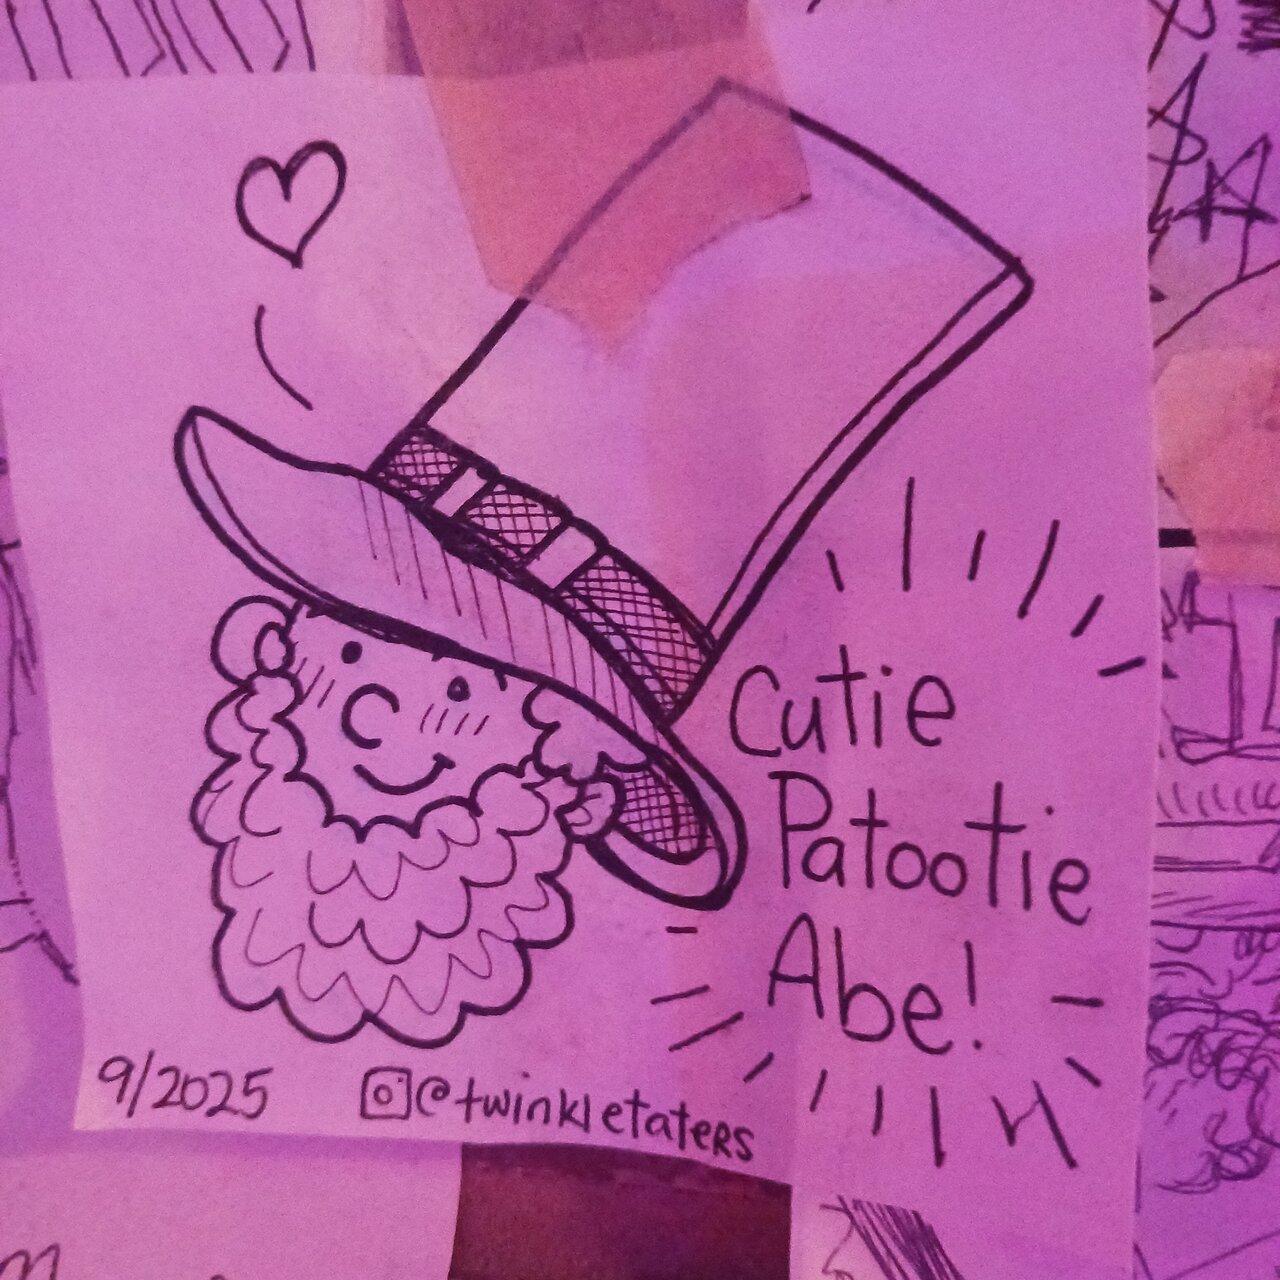 Cutie
Patootie
Abe!
9/2025 @twinkletaters